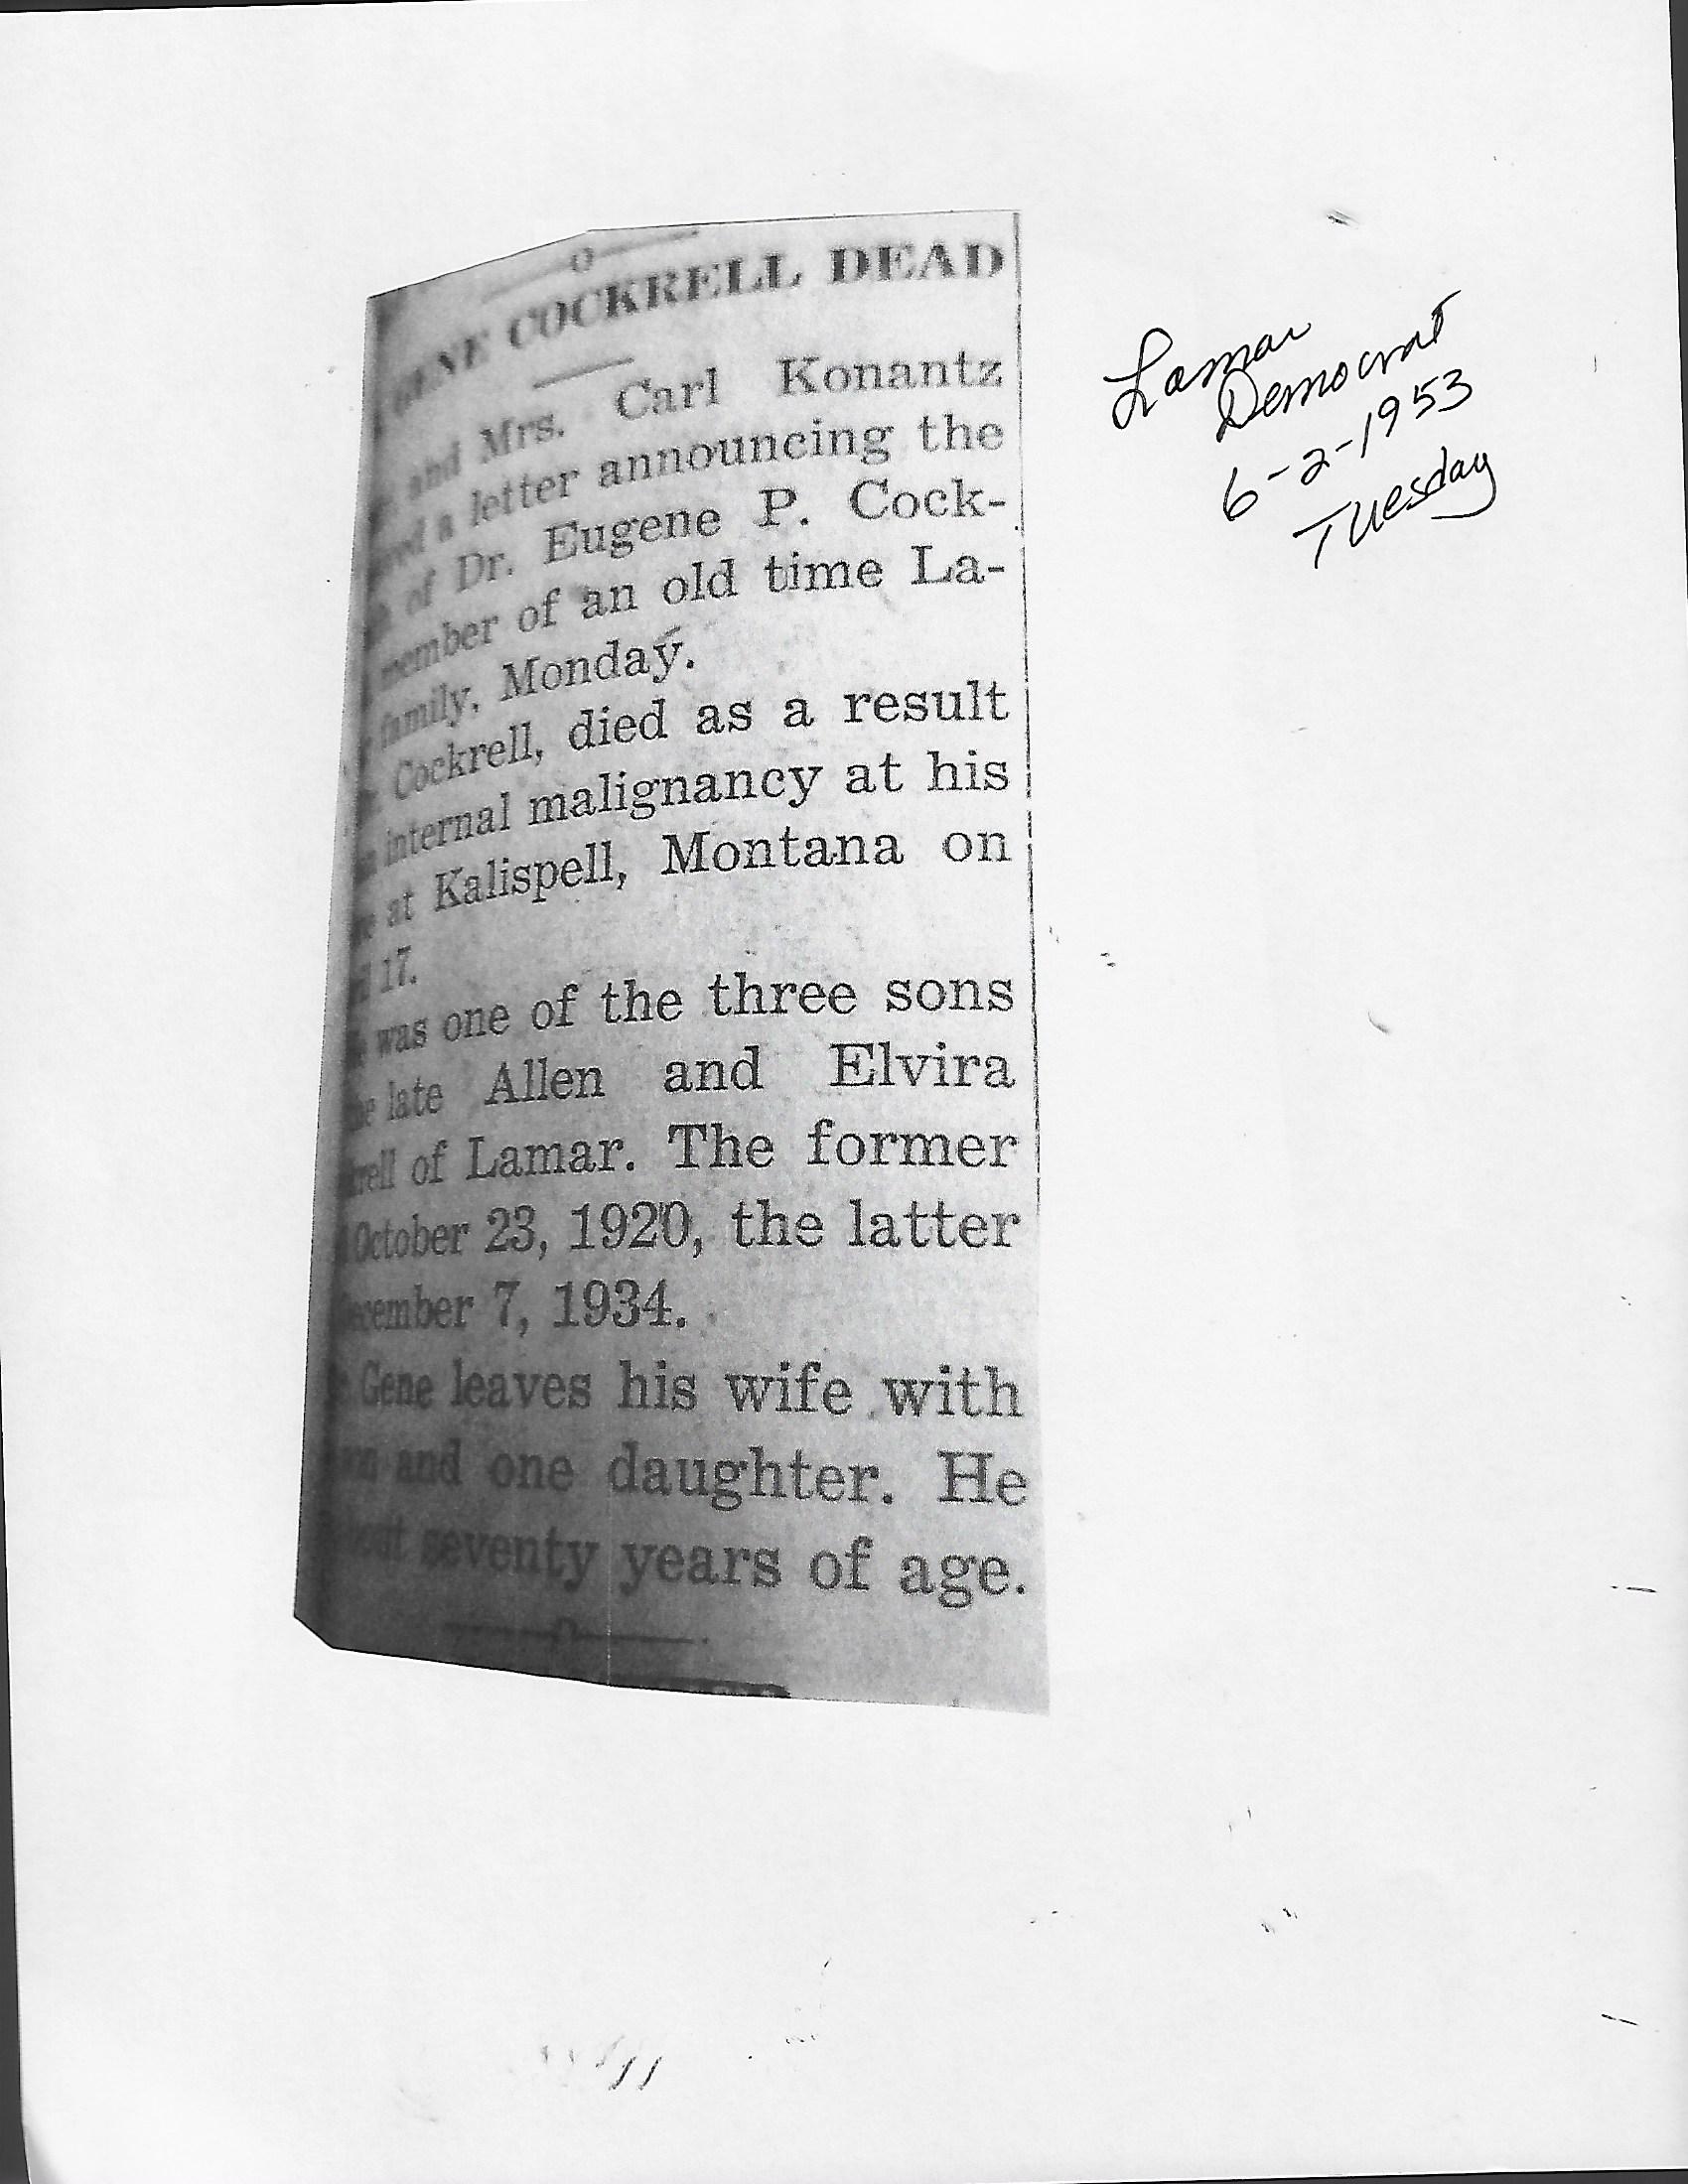 GENE COCKRELL DEAD
and Mrs. Carl Konantz
a letter announcing the
of Dr. Eugene P. Cock-
member of an old time La-
family, Monday.
Cockrell, died as a result
internal malignancy at his
at Kalispell, Montana on
17.
was one of the three sons
late Allen and Elvira
rell of Lamar. The former
October 23, 1920, the latter
December 7, 1934.
Gene leaves his wife with
and one daughter. He
seventy years of age.
Lamar
Democrat
6-2-1953
Tuesday